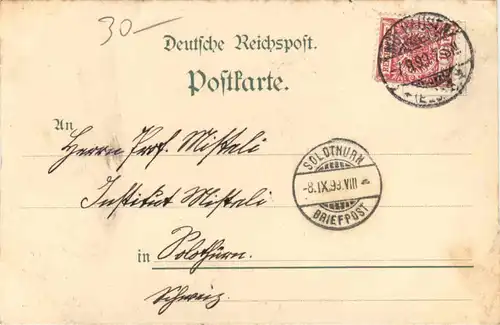 30—
Deutsche Reichspost.
Postkarte.
An
Herrn Prof. Misteli
Institut Misteli
in Solothurn.
Schweiz.
SOLOTHURN
-8.IX.93.VIII
BRIEFPOST